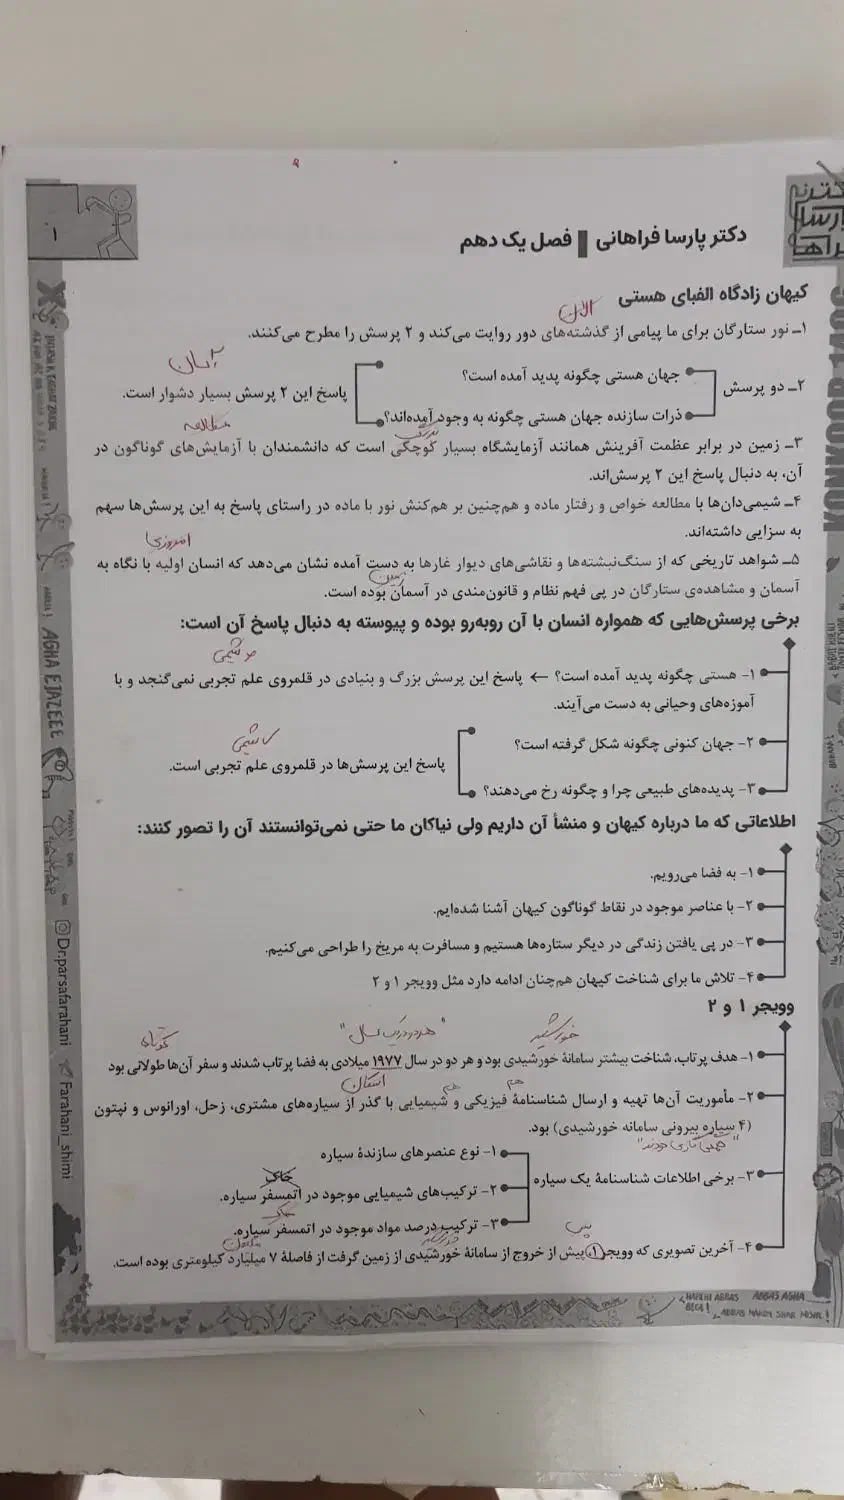 ۱
دکتر پارسا فراهانی | فصل یک دهم
کیهان زادگاه الفبای هستی
الان
۱ـ نور ستارگان برای ما پیامی از گذشته‌های دور روایت می‌کند و ۲ پرسش را مطرح می‌کنند.
آسان
۲ـ دو پرسش
جهان هستی چگونه پدید آمده است؟
ذرات سازنده جهان هستی چگونه به وجود آمده‌اند؟
پاسخ این ۲ پرسش بسیار دشوار است.
مطالعه
بزرگی
۳ـ زمین در برابر عظمت آفرینش همانند آزمایشگاه بسیار کوچکی است که دانشمندان با آزمایش‌های گوناگون در
آن، به دنبال پاسخ این ۲ پرسش‌اند.
۴ـ شیمی‌دان‌ها با مطالعه خواص و رفتار ماده و هم‌چنین بر هم‌کنش نور با ماده در راستای پاسخ به این پرسش‌ها سهم
به سزایی داشته‌اند.
امروزی
۵ـ شواهد تاریخی که از سنگ‌نبشته‌ها و نقاشی‌های دیوار غارها به دست آمده نشان می‌دهد که انسان اولیه با نگاه به
زمین
آسمان و مشاهده‌ی ستارگان در پی فهم نظام و قانون‌مندی در آسمان بوده است.
برخی پرسش‌هایی که همواره انسان با آن روبه‌رو بوده و پیوسته به دنبال پاسخ آن است:
۱- هستی چگونه پدید آمده است؟ ← پاسخ این پرسش بزرگ و بنیادی در قلمروی علم تجربی نمی‌گنجد و با
آموزه‌های وحیانی به دست می‌آیند.
۲- جهان کنونی چگونه شکل گرفته است؟
۳- پدیده‌های طبیعی چرا و چگونه رخ می‌دهند؟
پاسخ این پرسش‌ها در قلمروی علم تجربی است.
اطلاعاتی که ما درباره کیهان و منشأ آن داریم ولی نیاکان ما حتی نمی‌توانستند آن را تصور کنند:
۱- به فضا می‌رویم.
۲- با عناصر موجود در نقاط گوناگون کیهان آشنا شده‌ایم.
۳- در پی یافتن زندگی در دیگر ستاره‌ها هستیم و مسافرت به مریخ را طراحی می‌کنیم.
۴- تلاش ما برای شناخت کیهان هم‌چنان ادامه دارد مثل وویجر ۱ و ۲
وویجر ۱ و ۲
خورشید
"هردو در یک سال"
کوتاه
۱- هدف پرتاب، شناخت بیشتر سامانهٔ خورشیدی بود و هر دو در سال ۱۹۷۷ میلادی به فضا پرتاب شدند و سفر آن‌ها طولانی بود
هم
هم
۲- مأموریت آن‌ها تهیه و ارسال شناسنامهٔ فیزیکی و شیمیایی با گذر از سیاره‌های مشتری، زحل، اورانوس و نپتون
(۴ سیاره بیرونی سامانه خورشیدی) بود.
۳- برخی اطلاعات شناسنامهٔ یک سیاره
۱- نوع عنصرهای سازندهٔ سیاره
خاک
۲- ترکیب‌های شیمیایی موجود در اتمسفر سیاره.
خاک
۳- ترکیب درصد مواد موجود در اتمسفر سیاره.
پس
میلیون
۴- آخرین تصویری که وویجر ۱، پیش از خروج از سامانهٔ خورشیدی از زمین گرفت از فاصلهٔ ۷ میلیارد کیلومتری بوده است.
KONKOOR 1403
AGHA EJAZEEE
Dr.parsafarahani
Farahani_shimi
ABBAS AGHA